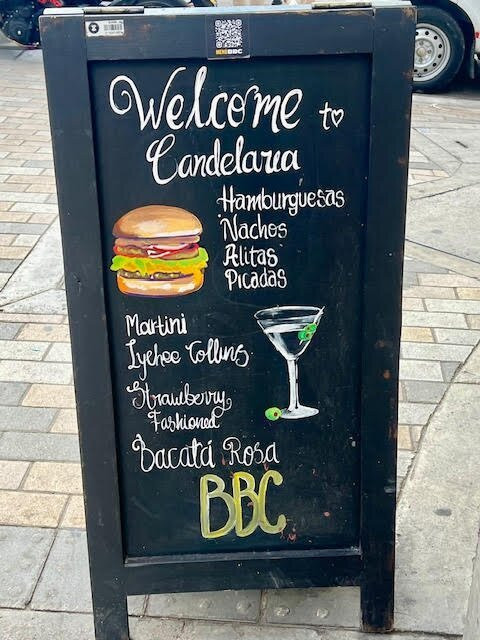 MENÚ BBC
Welcome to
Candelaria
Hamburguesas
Nachos
Alitas
Picadas
Martini
Lychee Collins
Strawberry
Fashioned
Bacatá Rosa
BBC